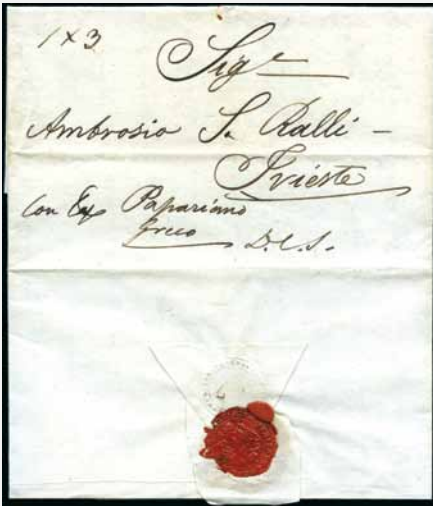 1 x 3
Sigr
Ambrosio S. Ralli -
Trieste
Con
Papariano
greco
D.C.S.